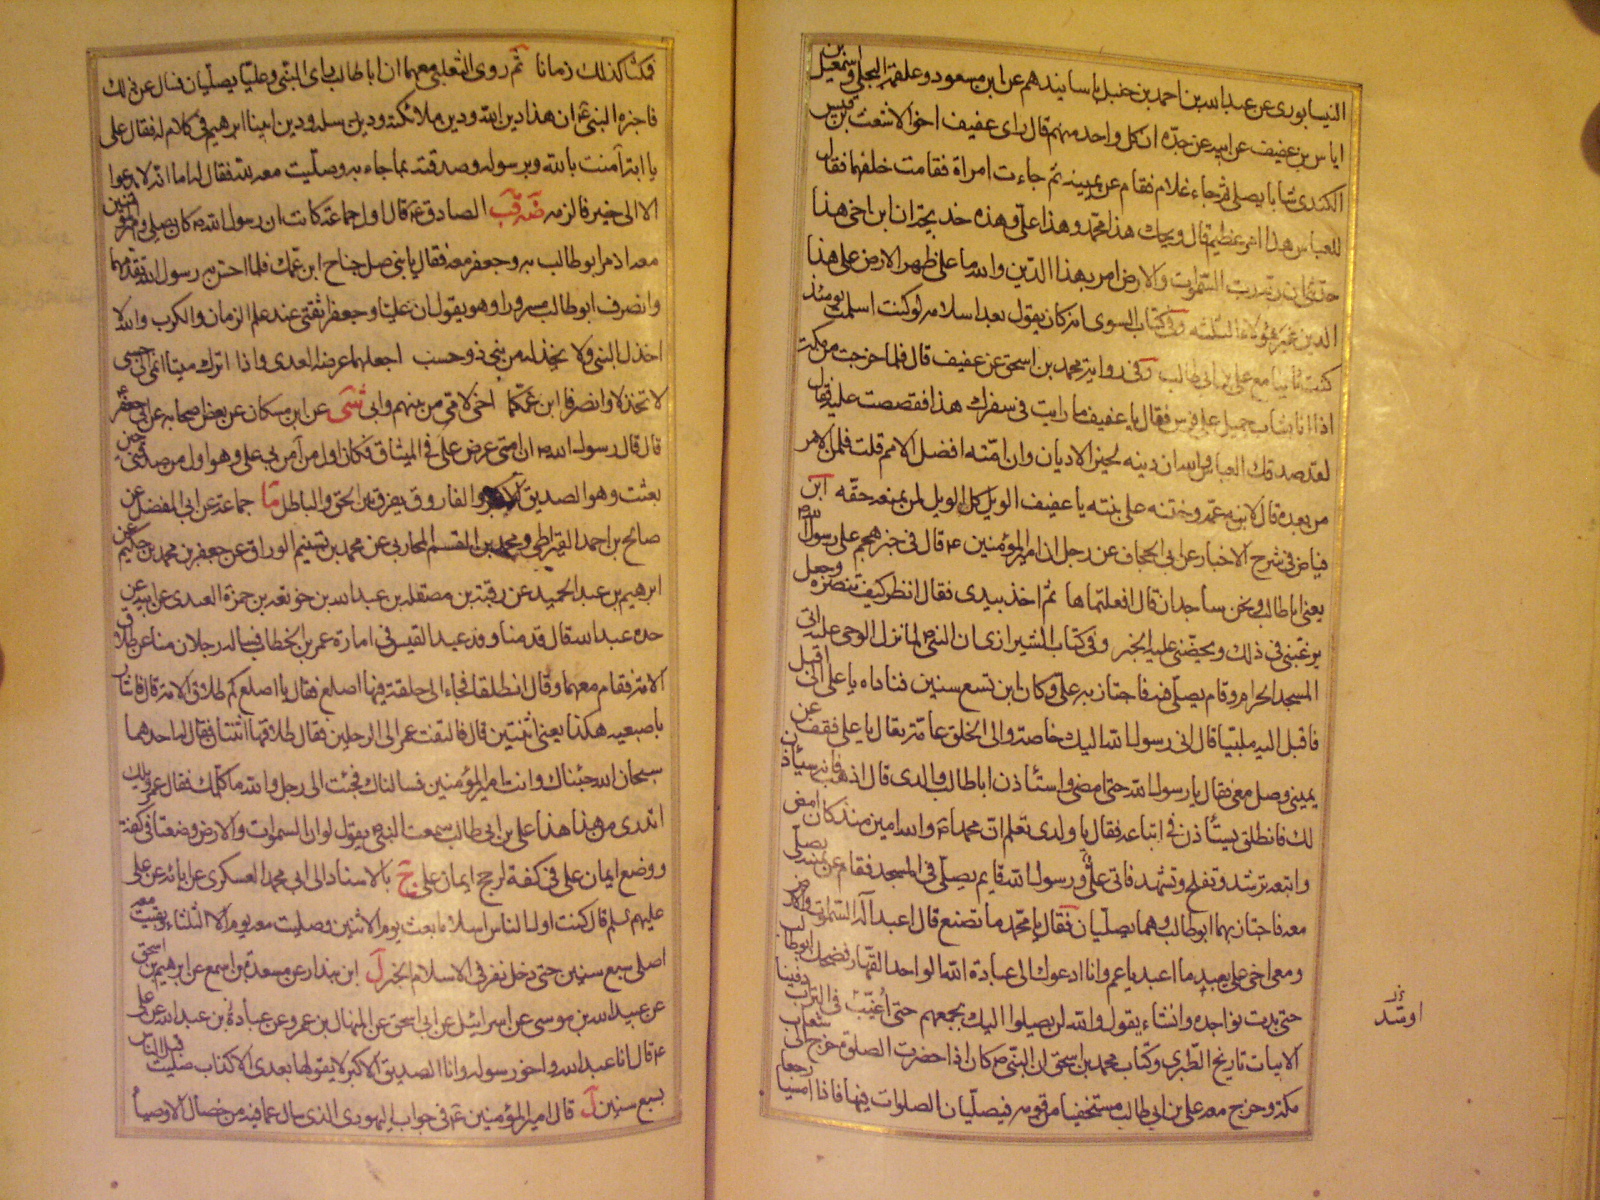 النيسابوري عن عبد الله بن احمد بن حنبل باسانيدهم عن ابن مسعود وعلقمة البجلي واسمعيل بن
اياس بن عفيف عن ابيه عن جده ان كل واحد منهم قال راى عفيف اخو الاشعث بن قيس
الكندي شابا يصلي ثم جاء غلام فقام عن يمينه ثم جاءت امراة فقامت خلفهما فقال
للعباس هذا امر عظيم قال ويحك هذا محمد وهذا علي وهذه خديجة ان ابن اخي هذا
حدثني ان ربه رب السموات والارض امره بهذا الدين والله ما على ظهر الارض على هذا
الدين غير هؤلاء الثلثة وفي كتاب النسوي انه كان يقول بعد اسلامه لو كنت اسلمت يومئذ
كنت ثانيا مع علي بن ابي طالب وفي رواية محمد بن اسحق عن عفيف قال فلما خرجت من مكة
اذا انا بشاب جميل على فرس فقال يا عفيف ما رايت في سفرك هذا فقصصت عليه فقال
لقد صدقك العباس والله ان دينه لخير الاديان وان امته افضل الامم قلت فلمن الامر
من بعده قال لابن عمه وختنه على بنته يا عفيف الويل كل الويل لمن يمنعه حقه ابن
فياض في شرح الاخبار عن ابي الجحاف عن رجل ان امير المؤمنين ع قال في خبر هجم على رسول الله ص
يعني ابا طالب ونحن ساجدان قال افعلتماها ثم اخذ بيدي فقال انظر كيف تنصره وجعل
يرغبني في ذلك ويحضني عليه الخبر وفي كتاب الشيرازي ان النبي ص لما نزل الوحي عليه اتى
المسجد الحرام وقام يصلي فيه فاجتاز به علي ع وكان ابن تسع سنين فناداه يا علي الي اقبل
فاقبل اليه ملبيا قال اني رسول الله اليك خاصة والى الخلق عامة تعال يا علي فقف عن
يميني وصل معي فقال يا رسول الله حتى امضي واستأذن ابا طالب والدي قال اذهب فانه سيأذن
لك فانطلق يستأذن في اتباعه فقال يا ولدي تعلم ان محمدا ص والله امين منذ كان امض
واتبعه ترشد وتفلح وتشهد فاتى علي ع ورسول الله قايم يصلي في المسجد فقام عن يمينه يصلي
معه فاجتاز بهما ابو طالب وهما يصليان فقال يا محمد ما تصنع قال اعبد اله السموات والارض
ومعي اخي علي يعبد ما اعبد يا عم وانا ادعوك الى عبادة الله الواحد القهار فضحك ابو طالب
حتى بدت نواجده وانشاء يقول والله لن يصلوا اليك بجمعهم حتى اغيب في التراب دفينا
الابيات تاريخ الطبري وكتاب محمد بن اسحق ان النبي ص كان اذا حضرت الصلوة خرج الى شعاب
مكة وخرج معه علي بن ابي طالب مستخفيا من قومه فيصليان الصلوات فيها فاذا امسيا رجعا
فمكثا كذلك زمانا ثم روى الثعلبي معهما ان ابا طالب راى النبي وعليا يصليان فسال عن ذلك
فاخبره النبي ع ان هذا دين الله ودين ملائكته ودين رسله ودين ابينا ابرهيم في كلام له فقال علي
يا ابة آمنت بالله وبرسوله وصدقته بما جاء به وصليت معه لله فقال له اما انه لا يدعوا
الا الى خير فالزمه الصادق ع قال اول جماعة كانت ان رسول الله ص كان يصلي وامير المؤمنين
معه اذ مر ابو طالب به وجعفر معه فقال يا بني صل جناح ابن عمك فلما احس به رسول الله تقدمهما
وانصرف ابو طالب مسرورا وهو يقول ان عليا وجعفرا ثقتي عند علم الزمان والكرب والله لا
اخذل النبي ولا يخذله من بني ذو حسب اجعلهما عرضه العدى واذا اترك ميتا انمى الى حسبي
لا تخذلا وانصرفا ابن عمكما اخي لامي من بينهم وابي شى عن ابن مسكان عن بعض اصحابه عن ابي جعفر ع
قال قال رسول الله ص ان امتي عرض علي في الميثاق فكان اول من آمن بي علي وهو اول من صدقني حين
بعثت وهو الصديق الاكبر والفاروق يفرق بين الحق والباطل ما جماعة عن ابي المفضل عن
صالح بن احمد القيراطي ومحمد بن القسم المحاربي عن محمد بن تسنيم الوراق عن جعفر بن محمد بن حكيم عن
ابرهيم بن عبد الحميد عن رقبة بن مصقله بن عبد الله بن خوتعه بن حمزة العبدي عن ابيه عن
جده عبد الله قال قدمنا وفد عبد القيس في امارة عمر بن الخطاب فساله رجلان منا عن طلاق
الامة فقام معهما وقال انطلقا فجاء الى حلقة فيها اصلع فقال يا اصلع كم طلاق الامة قال فاشار
باصبعيه هكذا يعني اثنتين قال فالتفت عمر الى الرجلين فقال طلاقها اثنتان فقال له احدهما
سبحان الله جئناك وانت امير المؤمنين فسالناك فجئت الى رجل والله ما كلمك فقال عمر ويلك
اتدري من هذا هذا علي بن ابي طالب سمعت النبي ص يقول لو ان السموات والارض وضعتا في كفة
ووضع ايمان علي في كفة لرجح ايمان علي ج بالاسناد الى ابي محمد العسكري عن ابائه عن علي
عليهم السلم قال كنت اول الناس اسلاما بعث يوم الاثنين وصليت معه يوم الثلثاء وبقيت معه
اصلي سبع سنين حتى دخل نفر في الاسلام الخبر ل ابن بندار عن مسعدة بن اسمع عن ابرهيم بن اسحق
عن عبيد الله بن موسى عن اسرائيل عن ابي اسحق عن المنهال بن عمرو عن عبادة بن عبد الله عن علي
ع قال انا عبد الله واخو رسوله وانا الصديق الاكبر لا يقولها بعدي الا كذاب صليت قبل الناس
بسبع سنين ل قال امير المؤمنين ع في جواب اليهودي الذي سال عما فيه من خصال الاوصياء